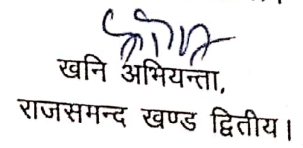 खनि अभियन्ता,
राजसमन्द खण्ड द्वितीय।